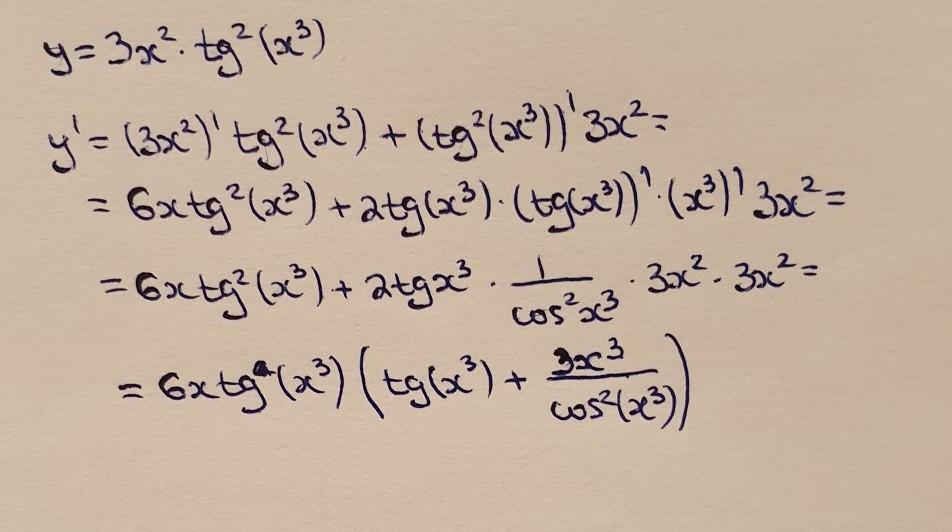 y = 3x² · tg²(x³)
y' = (3x²)' tg²(x³) + (tg²(x³))' 3x² =
= 6x tg²(x³) + 2tg(x³) · (tg(x³))' · (x³)' 3x² =
= 6x tg²(x³) + 2tgx³ · 1/cos²x³ · 3x² · 3x² =
= 6x tg(x³) (tg(x³) + 3x³/cos²(x³))